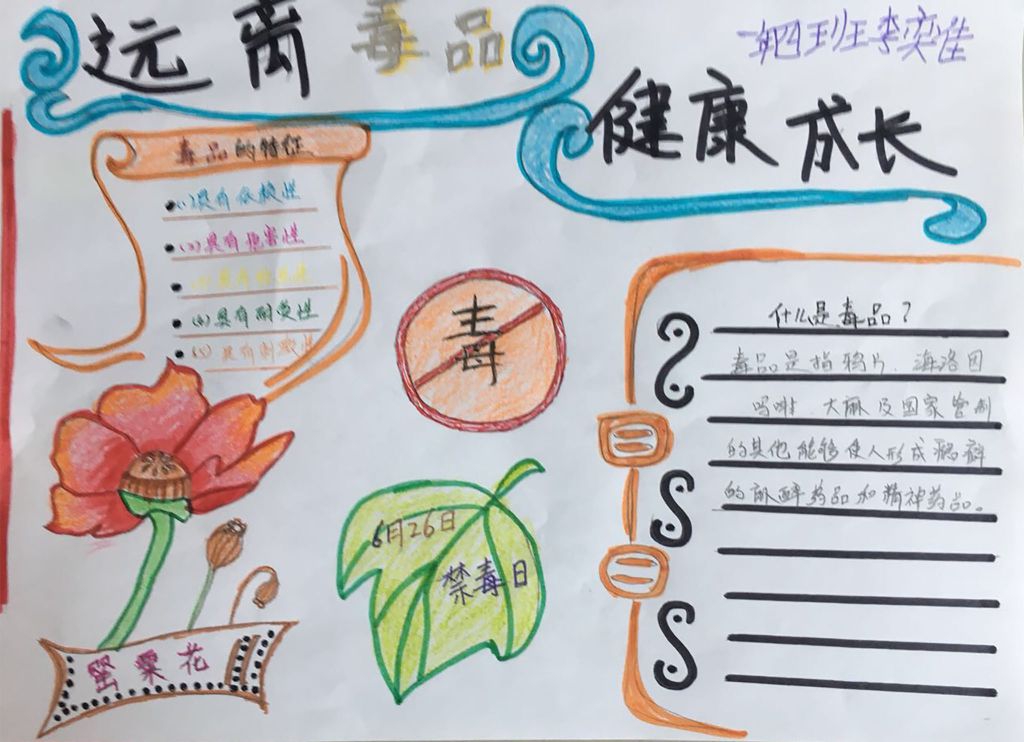 远离毒品
一年四班李奕佳
健康成长
毒品的特征
(1)具有依赖性
(2)具有危害性
(4)具有耐受性
(5)具有刺激性
毒
什么是毒品？
毒品是指鸦片、海洛因
吗啡、大麻及国家管制
的其他能够使人形成瘾癖
的麻醉药品和精神药品。
6月26日
禁毒日
罂粟花